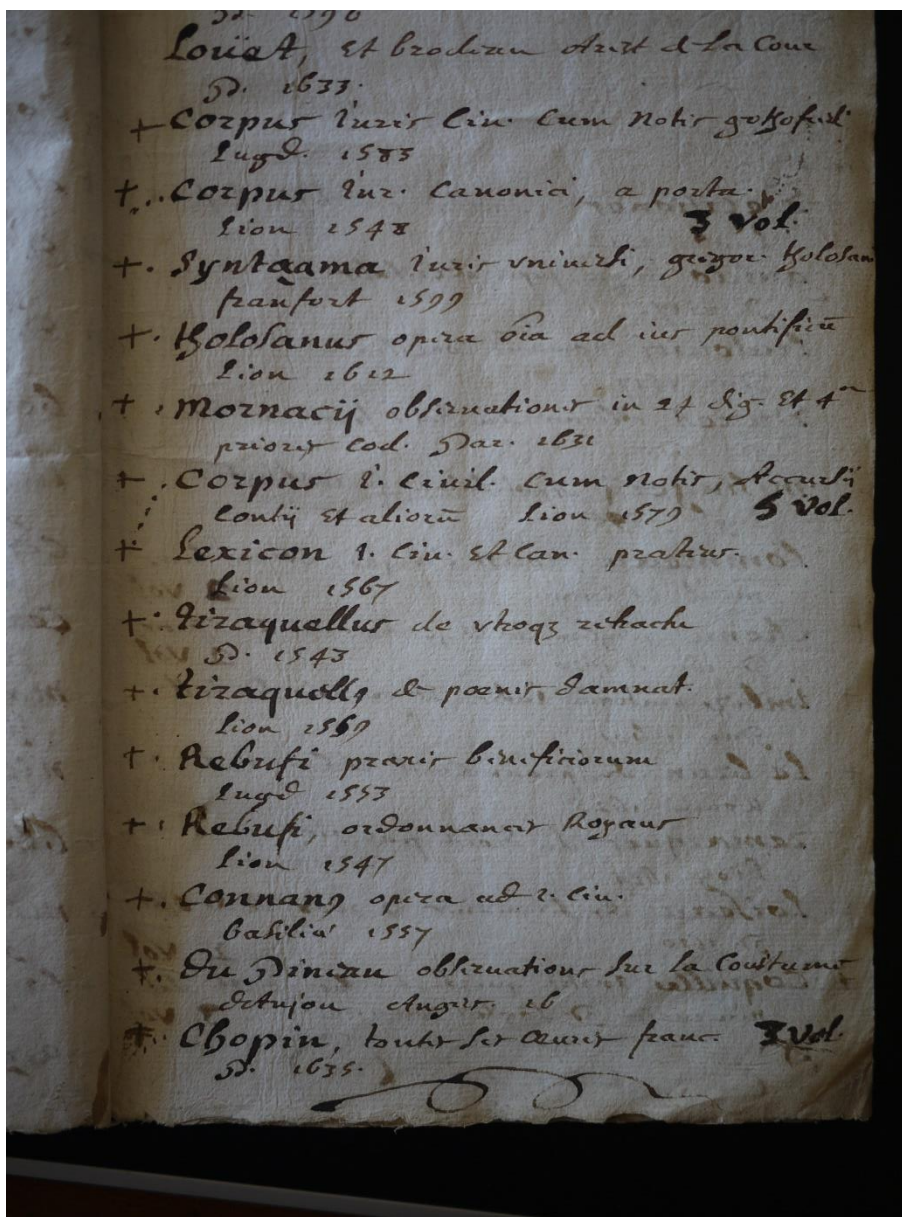 Loüet, Et brodeau Arest de La Cour
P. 1633.
+ Corpus Iuris Civ. Cum Notis gothofredi
Lugd. 1583
+ Corpus Iur. Canonici, a porta.
Lion 1548 3 Vol.
+ Syntagma Iuris vniuersi, gregor. tholosani
franfort 1599
+ tholosanus opera oia ad ius pontificiū
Lion 1612
+ Mornacij obseruationes in 24 dig. Et 4or
priores Cod. Par. 1631
+ Corpus I. Ciuil. Cum Notis, Accursij
Contij Et aliorū Lion 1579 5 Vol.
+ Lexicon I. Ciu. Et Can. prateius.
Lion 1567
+ tiraquellus de vtroqz retractu
P. 1543
+ tiraquellꝰ de poenis damnat.
Lion 1569
+ Rebufi praxis beneficiorum
Lugd 1553
+ Rebufi, ordonnances Royaus
Lion 1547
+ Connanꝰ opera ad I. Ciu.
basiliæ 1557
+ Du Pineau obseruations sur la Coustume
d'Anjou Angers. 16
+ Chopin, toutes ses œuures franc. 3 Vol.
P. 1635.